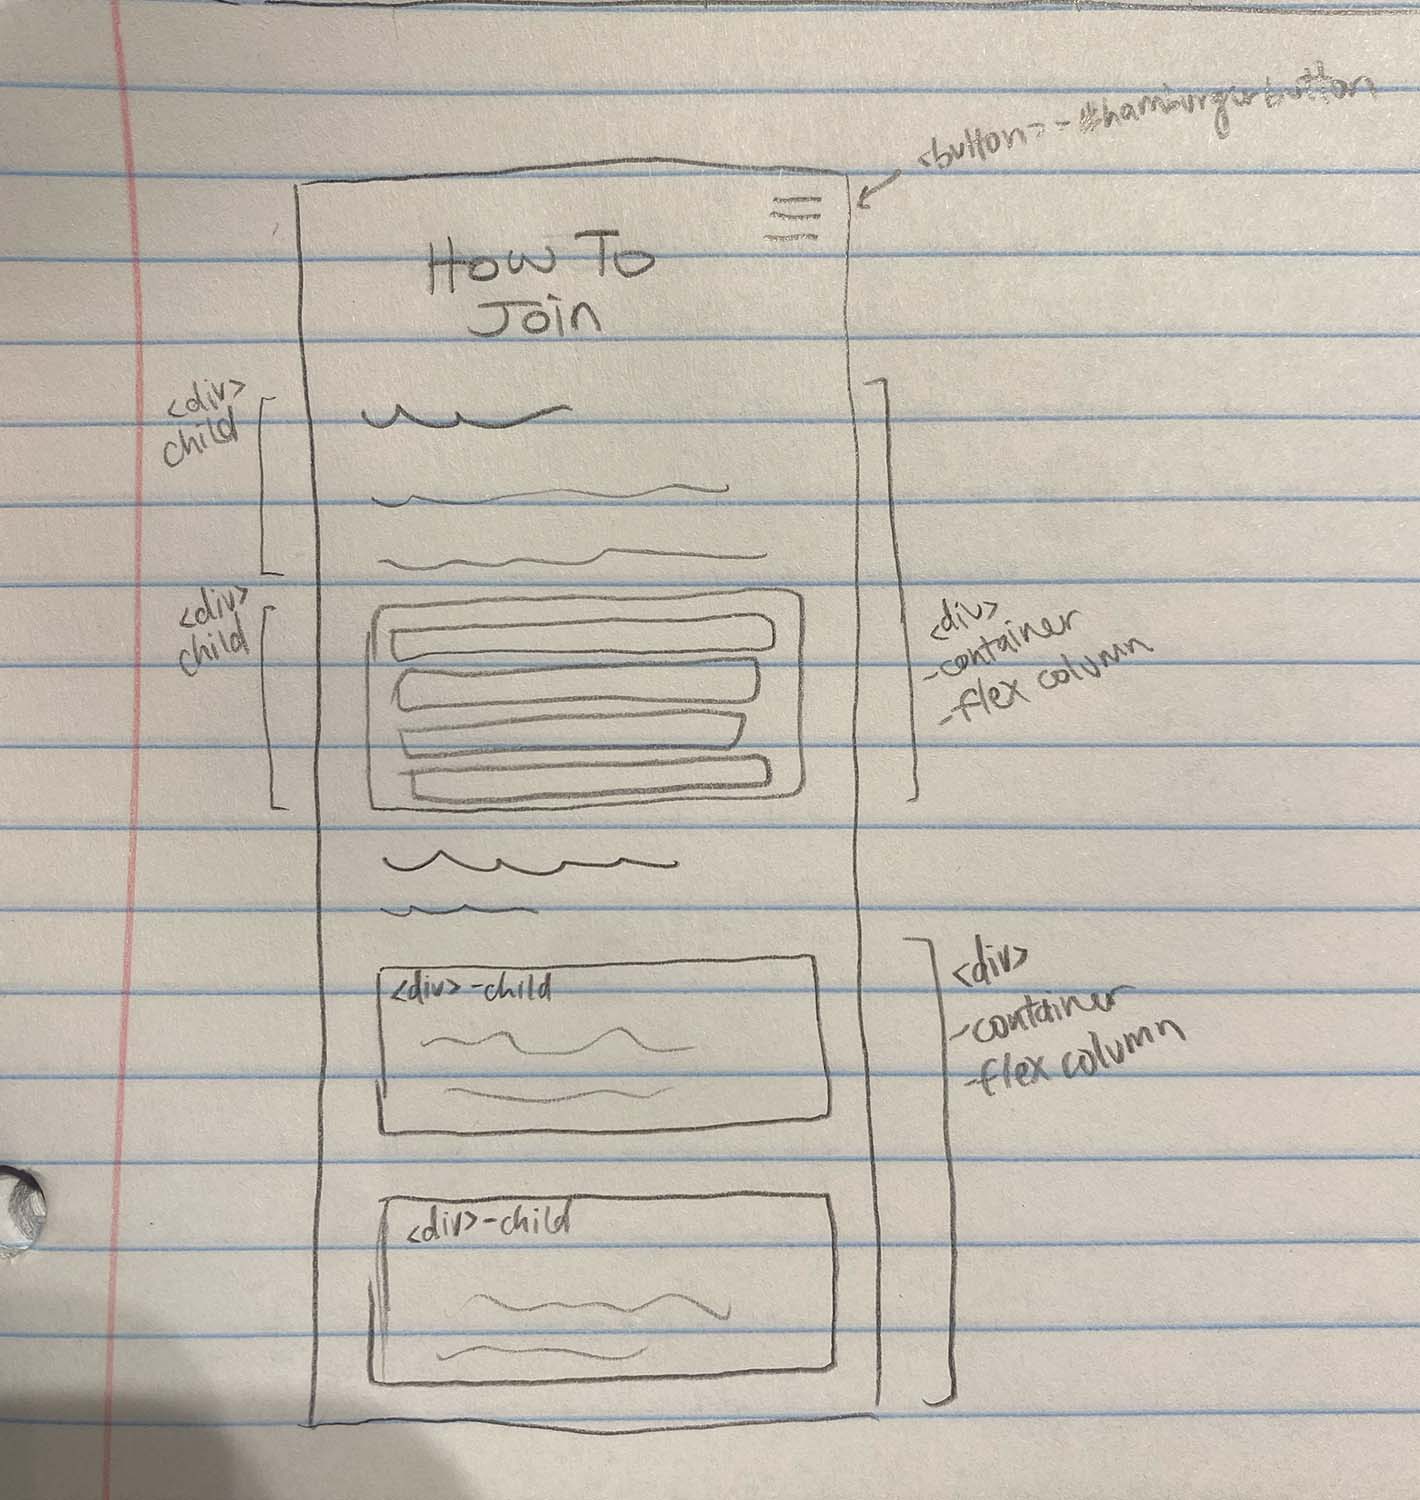 <button> - #hamburgerbutton
How To
Join
<div>
child
<div>
child
<div>
-container
-flex column
<div>-child
<div>
-container
-flex column
<div>-child